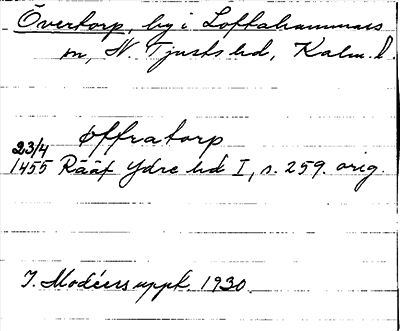 Övertorp, by i Loftahammars
sn, N. Tjusts hd, Kalm. l.
Øffratorp
23/4
1455 Rääf Ydre hd I, s. 259. orig.
I. Modéers uppt. 1930.